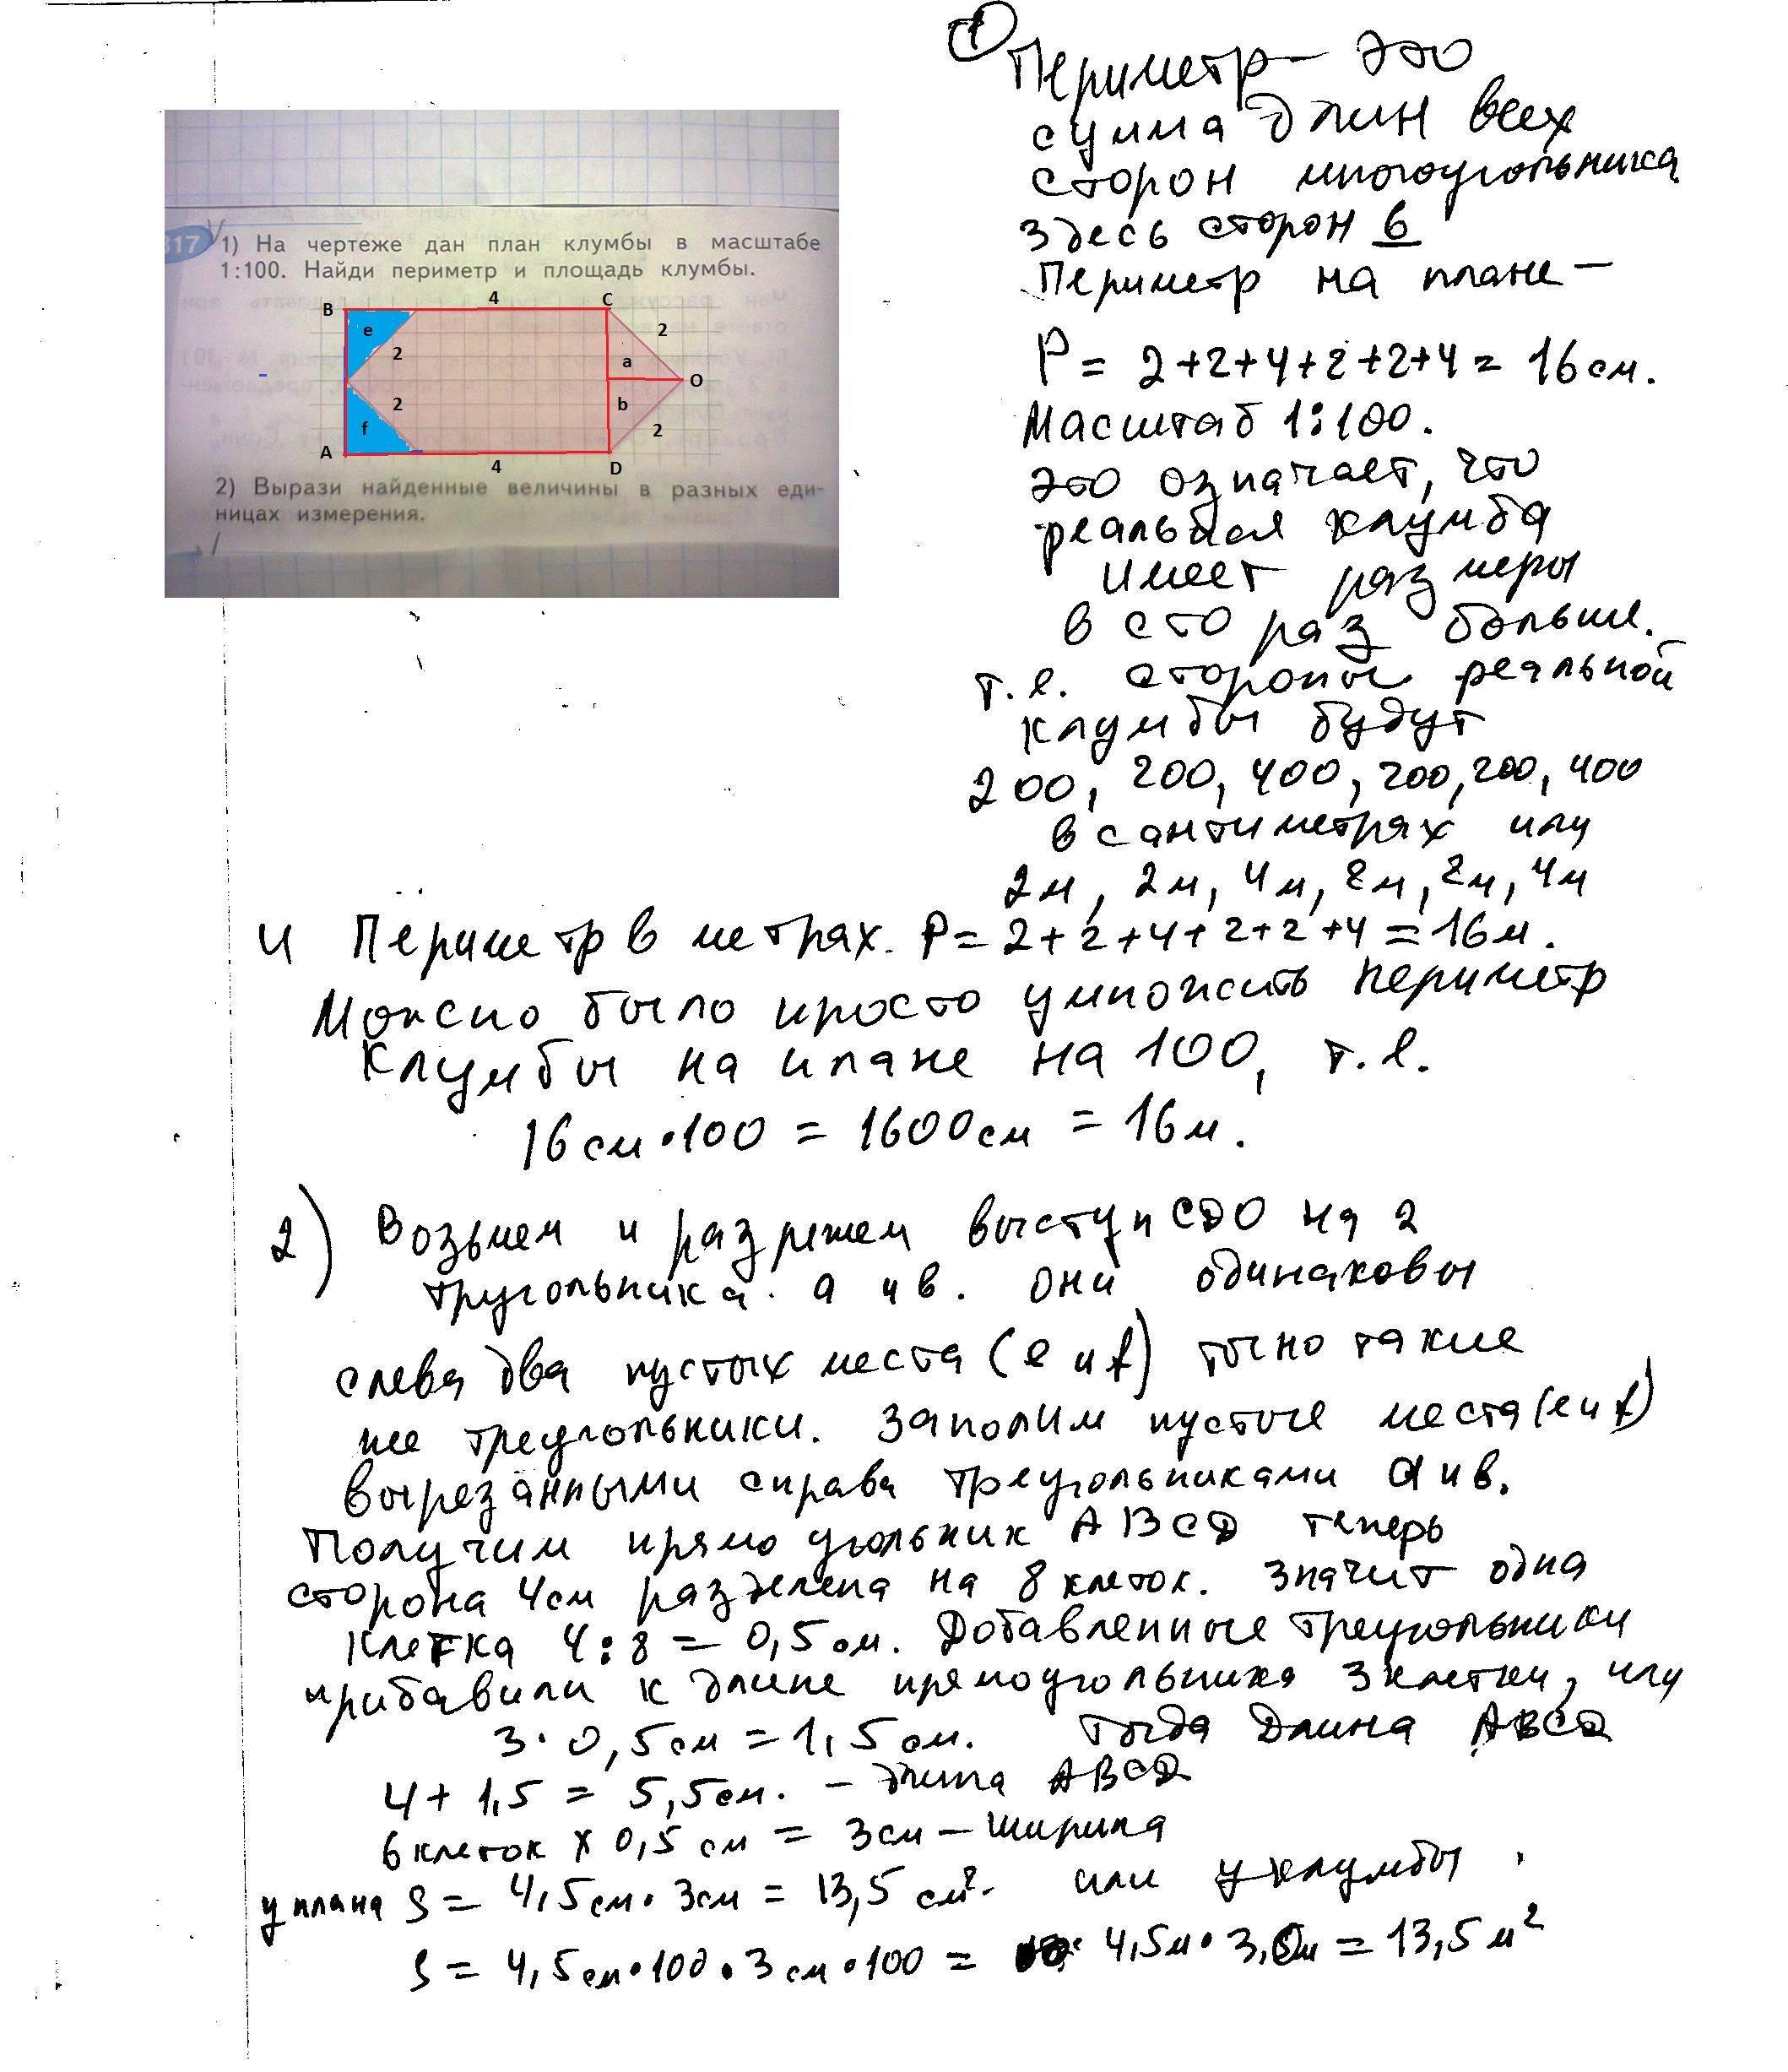 317 1) На чертеже дан план клумбы в масштабе
1:100. Найди периметр и площадь клумбы.
B 4 C
e 2 2
a
O
2 b
f 2
A 4 D
2) Вырази найденные величины в разных еди-
ницах измерения.
1 Периметр – это
сумма длин всех
сторон многоугольника
здесь сторон 6
Периметр на плане –
P = 2+2+4+2+2+4 = 16 см.
Масштаб 1:100.
это означает, что
реальная клумба
имеет размеры
в сто раз больше.
т.е. стороны реальной
клумбы будут
200, 200, 400, 200, 200, 400
в сантиметрах или
2м, 2м, 4м, 2м, 2м, 4м
и Периметр в метрах. P = 2+2+4+2+2+4 = 16м.
Можно было просто умножить периметр
клумбы на плане на 100, т.е.
16см•100 = 1600см = 16м.
2) Возьмем и разрежем выступ CDO на 2
тругольника. а и в. они одинаковы
слева два пустых места (e и f) точно такие
же треугольники. Заполим пустые места (e и f)
вырезанными справа треугольниками а и в.
Получим прямоугольник ABCD теперь
сторона 4см разделена на 8 клеток. Значит одна
клетка 4:8 = 0,5 см. Добавленные треугольники
прибавили к длине прямоугольника 3 клетки, или
3•0,5см = 1,5 см. Тогда Длина ABCD
4 + 1,5 = 5,5см. – длина ABCD
6 клеток x 0,5 см = 3см – ширина
у плана S = 4,5см•3см = 13,5 см². или у клумбы
S = 4,5см•100•3см•100 = 4,5м•3,0м = 13,5 м²